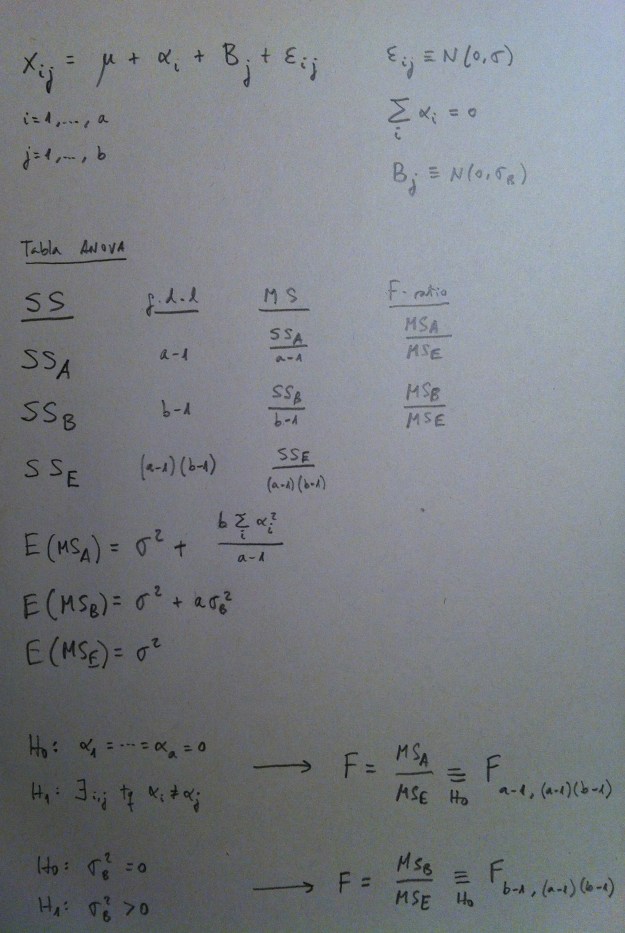 x_ij = μ + α_i + B_j + ε_ij    ε_ij ≡ N(0,σ)
i=1,...,a    Σ_i α_i = 0
j=1,...,b    B_j ≡ N(0,σ_B)
Tabla ANOVA
SS    g.d.l    MS    F-ratio
SS_A    a-1    SS_A/(a-1)    MS_A/MS_E
SS_B    b-1    SS_B/(b-1)    MS_B/MS_E
SS_E    (a-1)(b-1)    SS_E/((a-1)(b-1))
E(MS_A) = σ² + (b Σ_i α_i²)/(a-1)
E(MS_B) = σ² + aσ_B²
E(MS_E) = σ²
H₀: α₁ = ... = α_a = 0
H₁: ∃ i,j tq α_i ≠ α_j    ⟶    F = MS_A/MS_E ≡_H₀ F_a-1,(a-1)(b-1)
H₀: σ_B² = 0
H₁: σ_B² > 0    ⟶    F = MS_B/MS_E ≡_H₀ F_b-1,(a-1)(b-1)